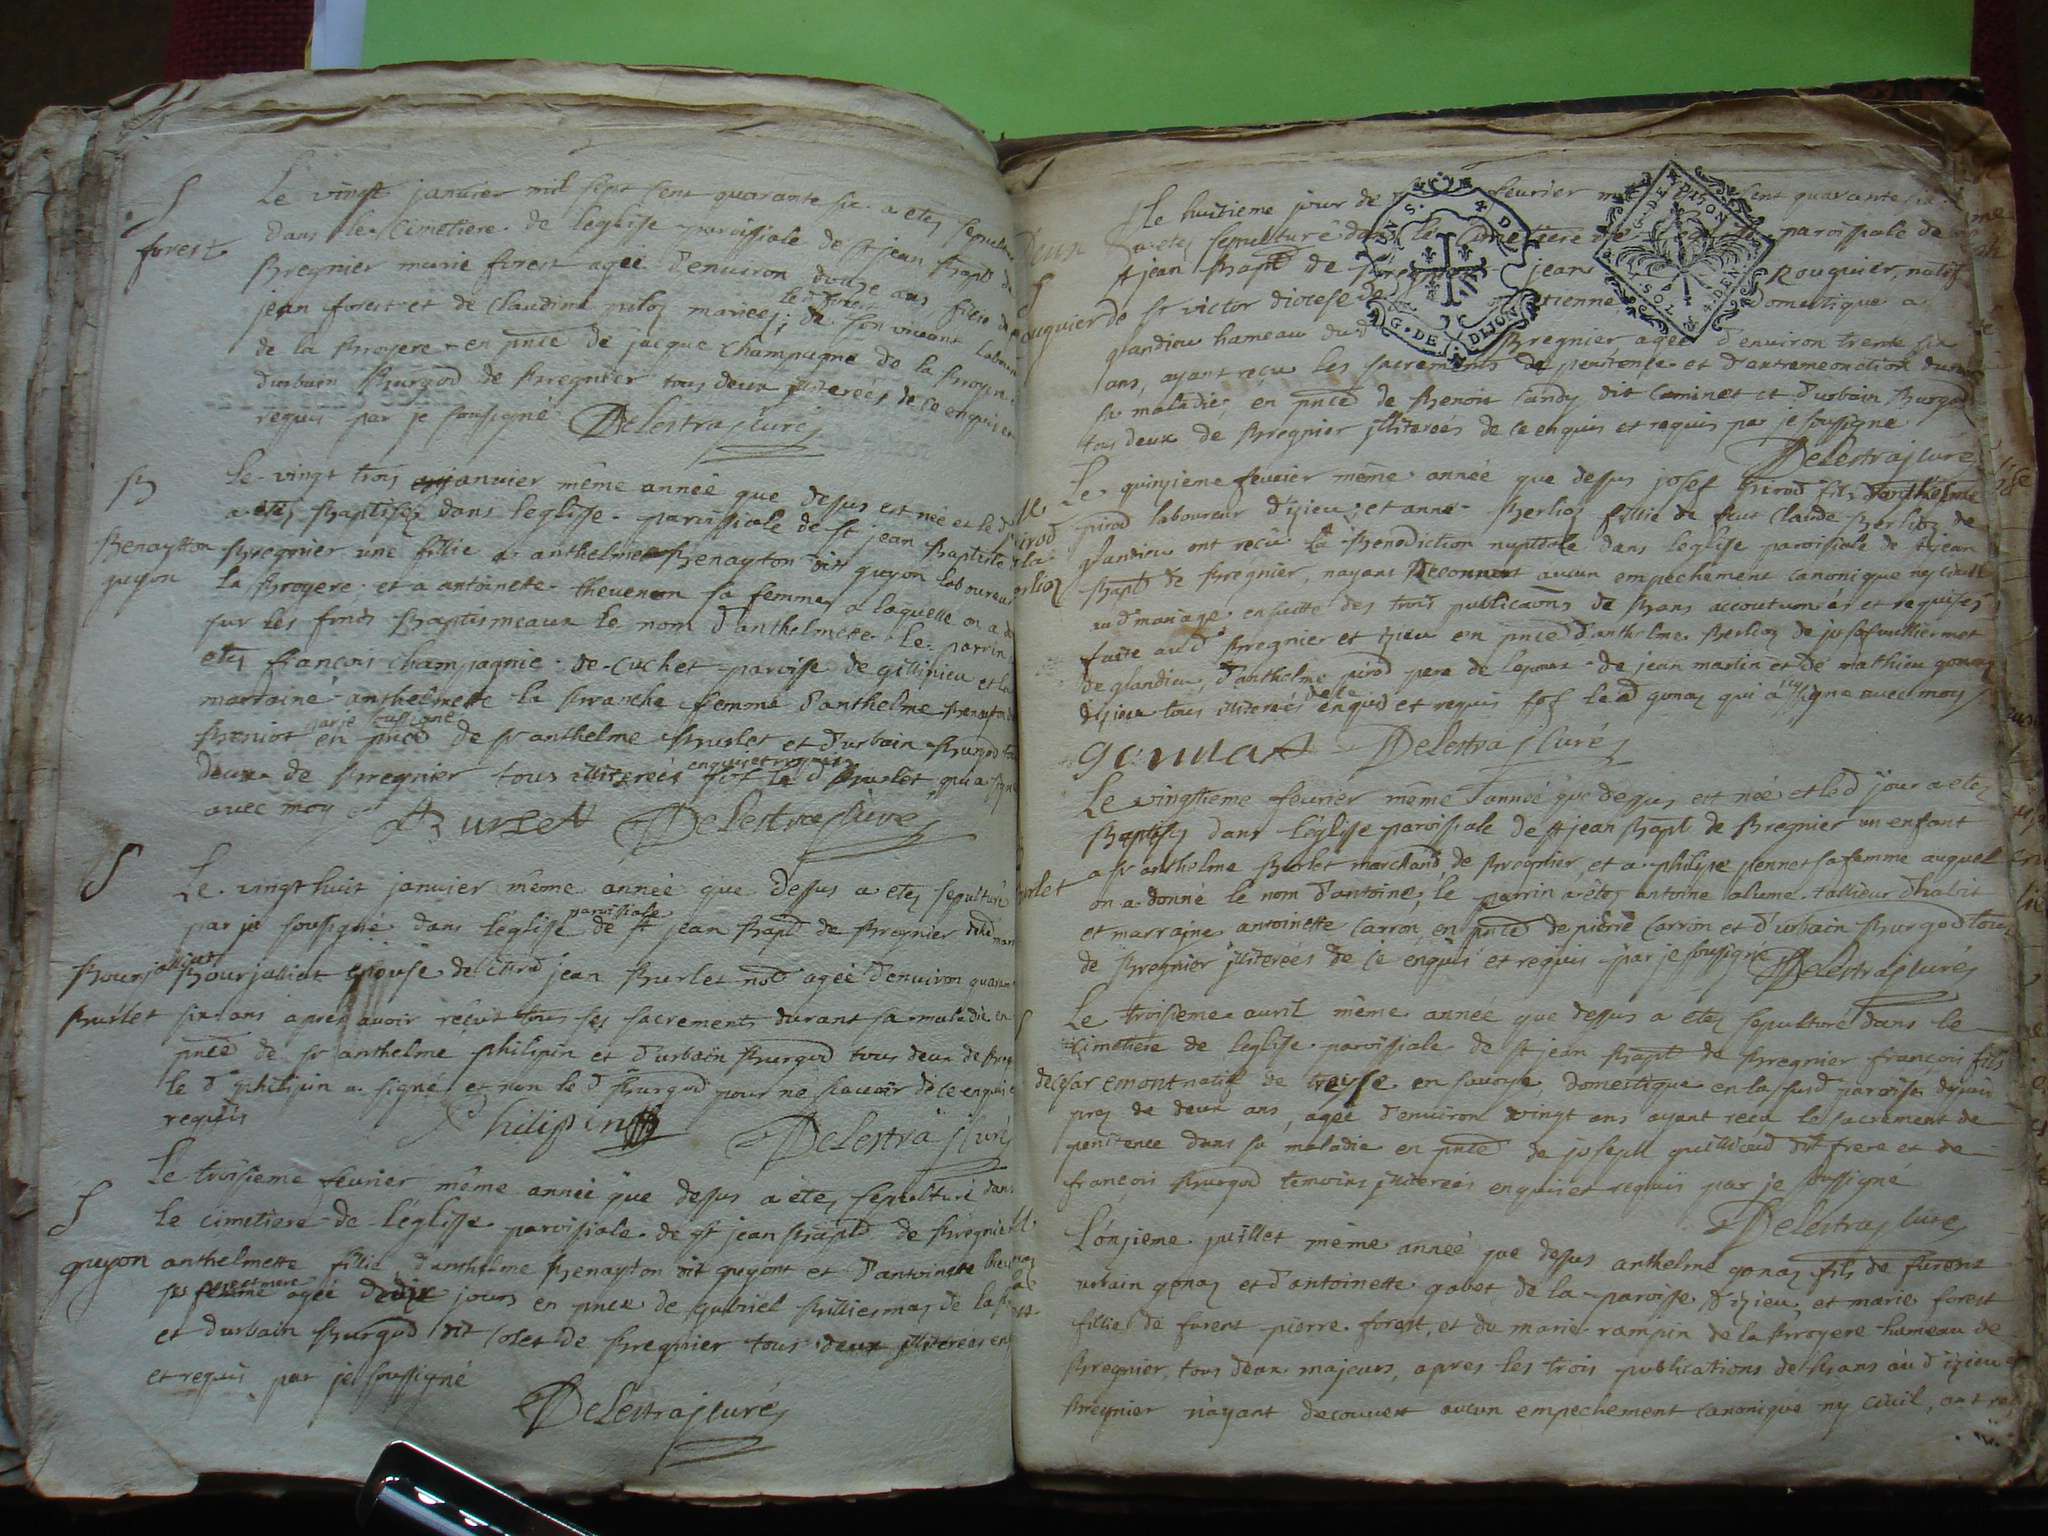 S
forest
Le vingt janvier mil sept cent quarante six a etez sepulturé
dans le Cimetiere de leglisse paroissiale de st jean Bapt de
Bregnier marie forest ageé d'environ douze ans, fillie de
jean forest et de Claudine piloz mariez; de son vivant
de la Broyere en pnce de jacque Champagne de la Broyere
d'urbain Burgod de Bregnier tous deux illitereés de ce enquis et
requis par je soussigné Delestraz Curéz
B
Benayton
guyon
Le vingt trois janvier même année que dessus est neé et le d
a etez Baptisez dans leglisse paroissiale de st jean Baptiste
Bregnier une fillie a anthelme Benayton dit guyon laboureur
la Broyere et a antoinette thevenon sa femme, a laquelle on a
sur les fonds Baptismeaux le nom d'anthelmette le parrin
etez françois Champagnie de Cuchet paroisse de gillinieu et la
marraine anthelmette la femme d'anthelme Benayton
Beniot par je soussigné en pnce de sr anthelme Burlet et d'urbain Burgod
deux de Bregnier tous illitereés enquis et requis fof le d Burlet qui a signé
avec moy Burlet Delestraz Curéz
S
Bourjalliat
Burlet
Le vingt huit janvier même année que dessus a etez sepulturé
par je soussigné dans l'églisse paroissiale de st jean Bapt de Bregnier
Bourjalliat epouse de jean Burlet not ageé d'environ quarante
six ans apres avoir reçut tous ses sacrements durant sa maladie en
pnce de sr anthelme philipin et d'urbain Burgod tous deux de Breg
le d philipin a signé et non le d Burgod pour ne scavoir de ce enquis
requis Philipin Delestraz Curéz
S
guyon
Le troisieme fevrier même année que dessus a etez sepulturé dans
le cimetiere de l'églisse paroissiale de st jean Bapt de Bregnier
anthelmette fillie d'anthelme Benayton dit guyont et d'antoinette
ses pere et mere ageé de dix jours en pnce de gabriel Billiemaz de la
et d'urbain Burgod dit Colet de Bregnier tous deux illitereés
et requis par je soussigné
Delestraz Curéz
Le huitieme jour de fevrier cent quarante six
a etez sepulturé dans le cimetiere de paroissiale de
st jean Bapt de Bregnier jean Rouquier, natif
de st victor diocese de etienne domestique a
glandieu hameau du d Bregnier ageé d'environ trente six
ans, ayant reçu les sacrements de penitence et d'extremeonction durant
sa maladie, en pnce de Benoit Candy dit Caminet et d'urbain Burgod
tous deux de Bregnier illitereés de ce enquis et requis par je soussigné
Delestraz Curé
G. DE DIJON
G. DE DIJON
SOL
4. DEN
Le quinzieme fevrier même année que dessus josef pirod fils d'anthelme
pirod laboureur d'izieu, et anne Berlioz fillie de feut Claude Berlioz de
glandieu ont recu la Benediction nuptiale dans leglise paroissiale de st jean
Bapt de Bregnier, nayant deconnert aucun empechement canonique ny civil
au d mariage ensuitte des trois publicaons de Bans accoutumeés et requises
faite au d Bregnier et izieu en pnce d'anthelme Berlioz de josef vulliermet
de glandieu, d'anthelme pirod pere de lepoux de jean martin et de mathieu gonaz
d'izieu tous illitereés de ce enquis et requis fof le d gonaz qui a signe avec moy
gonnaz Delestraz Curéz
Le vingtieme fevrier même année que dessus est neé et led jour a etez
Baptisez dans l'églisse paroissiale de st jean Bapt de Bregnier un enfant
a sr anthelme Burlet marchand de Bregnier, et a philipe pennet sa femme auquel
on a donné le nom d'antoine, le parrin a etez antoine alume tallieur d'habit
et marraine antoinette Carron, en pnce de pierre Carron et d'urbain Burgod tous
de Bregnier illitereés de ce enquis et requis par je soussigné Delestraz Curéz
Le troisieme avril même année que dessus a etez sepulturé dans le
cimetiere de leglise paroissiale de st jean Bapt de Bregnier françois fils
de cesar emont natif de treise en savoye, domestique en la susd paroisse depuis
prez de deux ans, ageé d'environ vingt ans ayant recu le sacrement de
penitence dans sa maladie en pnce de joseph guillioud dit frere et de
françois Burgod temoins illitereés enquis et requis par je soussigné
Delestraz Curé
L'onzieme juillet même année que dessus anthelme gonaz fils de furent
urbain gonaz et d'antoinette gabet de la paroisse d'izieu, et marie forest
fillie de furent pierre forest, et de marie rampin de la Broyere hameau de
Bregnier, tous deux majeurs, apres les trois publications de Bans au d izieu et
Bregnier n'ayant decouvert aucun empechement canonique ny civil, ont reç